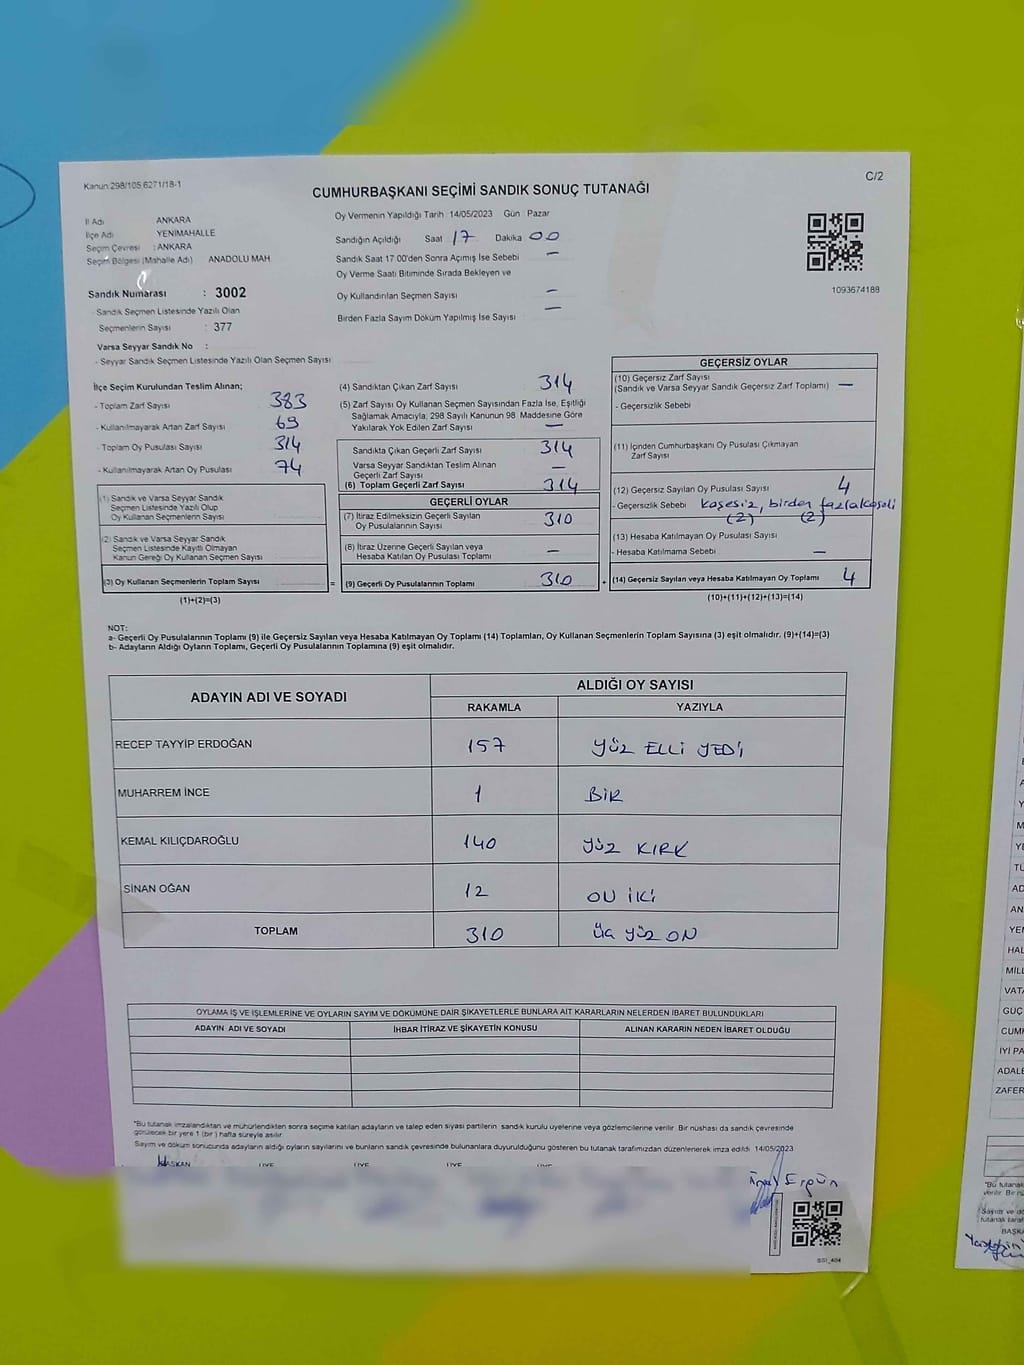 Kanun:298/105,6271/18-1
C/2
CUMHURBAŞKANI SEÇİMİ SANDIK SONUÇ TUTANAĞI
İl Adı ANKARA
İlçe Adı YENİMAHALLE
Seçim Çevresi : ANKARA
Seçim Bölgesi (Mahalle Adı) ANADOLU MAH
Sandık Numarası : 3002
- Sandık Seçmen Listesinde Yazılı Olan
Seçmenlerin Sayısı : 377
Varsa Seyyar Sandık No :
- Seyyar Sandık Seçmen Listesinde Yazılı Olan Seçmen Sayısı
Oy Vermenin Yapıldığı Tarih 14/05/2023 Gün : Pazar
Sandığın Açıldığı Saat 17 Dakika 00
Sandık Saat 17:00'den Sonra Açımış İse Sebebi —
Oy Verme Saati Bitiminde Sırada Bekleyen ve
Oy Kullandırılan Seçmen Sayısı —
Birden Fazla Sayım Döküm Yapılmış İse Sayısı —
1093674188
İlçe Seçim Kurulundan Teslim Alınan;
- Toplam Zarf Sayısı 383
- Kullanılmayarak Artan Zarf Sayısı 69
- Toplam Oy Pusulası Sayısı 314
- Kullanılmayarak Artan Oy Pusulası 74
(1) Sandık ve Varsa Seyyar Sandık
Seçmen Listesinde Yazılı Olup
Oy Kullanan Seçmenlerin Sayısı
(2) Sandık ve Varsa Seyyar Sandık
Seçmen Listesinde Kayıtlı Olmayan
Kanun Gereği Oy Kullanan Seçmen Sayısı
(3) Oy Kullanan Seçmenlerin Toplam Sayısı =
(1)+(2)=(3)
(4) Sandıktan Çıkan Zarf Sayısı 314
(5) Zarf Sayısı Oy Kullanan Seçmen Sayısından Fazla İse, Eşitliği
Sağlamak Amacıyla, 298 Sayılı Kanunun 98. Maddesine Göre
Yakılarak Yok Edilen Zarf Sayısı —
Sandıkta Çıkan Geçerli Zarf Sayısı 314
Varsa Seyyar Sandıktan Teslim Alınan
Geçerli Zarf Sayısı —
(6) Toplam Geçerli Zarf Sayısı 314
GEÇERLİ OYLAR
(7) İtiraz Edilmeksizin Geçerli Sayılan
Oy Pusulalarının Sayısı 310
(8) İtiraz Üzerine Geçerli Sayılan veya
Hesaba Katılan Oy Pusulaları Toplamı —
(9) Geçerli Oy Pusulalarının Toplamı 310 +
GEÇERSİZ OYLAR
(10) Geçersiz Zarf Sayısı
(Sandık ve Varsa Seyyar Sandık Geçersiz Zarf Toplamı) —
- Geçersizlik Sebebi
(11) İçinden Cumhurbaşkanı Oy Pusulası Çıkmayan
Zarf Sayısı
(12) Geçersiz Sayılan Oy Pusulası Sayısı 4
- Geçersizlik Sebebi kaşesiz, birden fazla kaşeli
(2) (2)
(13) Hesaba Katılmayan Oy Pusulası Sayısı
- Hesaba Katılmama Sebebi —
(14) Geçersiz Sayılan veya Hesaba Katılmayan Oy Toplamı 4
(10)+(11)+(12)+(13)=(14)
NOT:
a- Geçerli Oy Pusulalarının Toplamı (9) ile Geçersiz Sayılan veya Hesaba Katılmayan Oy Toplamı (14) Toplamları, Oy Kullanan Seçmenlerin Toplam Sayısına (3) eşit olmalıdır. (9)+(14)=(3)
b- Adayların Aldığı Oyların Toplamı, Geçerli Oy Pusulalarının Toplamına (9) eşit olmalıdır.
ADAYIN ADI VE SOYADI
ALDIĞI OY SAYISI
RAKAMLA YAZIYLA
RECEP TAYYİP ERDOĞAN 157 YÜZ ELLİ YEDİ
MUHARREM İNCE 1 BİR
KEMAL KILIÇDAROĞLU 140 YÜZ KIRK
SİNAN OĞAN 12 ON İKİ
TOPLAM 310 ÜÇ YÜZ ON
OYLAMA İŞ VE İŞLEMLERİNE VE OYLARIN SAYIM VE DÖKÜMÜNE DAİR ŞİKAYETLERLE BUNLARA AİT KARARLARIN NELERDEN İBARET BULUNDUKLARI
ADAYIN ADI VE SOYADI İHBAR İTİRAZ VE ŞİKAYETİN KONUSU ALINAN KARARIN NEDEN İBARET OLDUĞU
"Bu tutanak imzalandıktan ve mühürlendikten sonra seçime katılan adayların ve talep eden siyasi partilerin sandık kurulu üyelerine veya gözlemcilerine verilir. Bir nüshası da sandık çevresinde
görülecek bir yere 1 (bir) hafta süreyle asılır.
Sayım ve döküm sonucunda adayların aldığı oyların sayılarını ve bunların sandık çevresinde bulunanlara duyurulduğunu gösteren bu tutanak tarafımızdan düzenlenerek imza edildi. 14/05/2023
BAŞKAN ÜYE ÜYE ÜYE ÜYE
Ergün
SSİ_404
YE
TÜ
AD
AN
YEN
HAL
MİLL
VATA
GÜÇ
CUMH
İYİ PA
ADALE
ZAFER
"Bu tutanak
verilir. Bir n
Sayım ve dö
tutanak taraf
BAŞKA